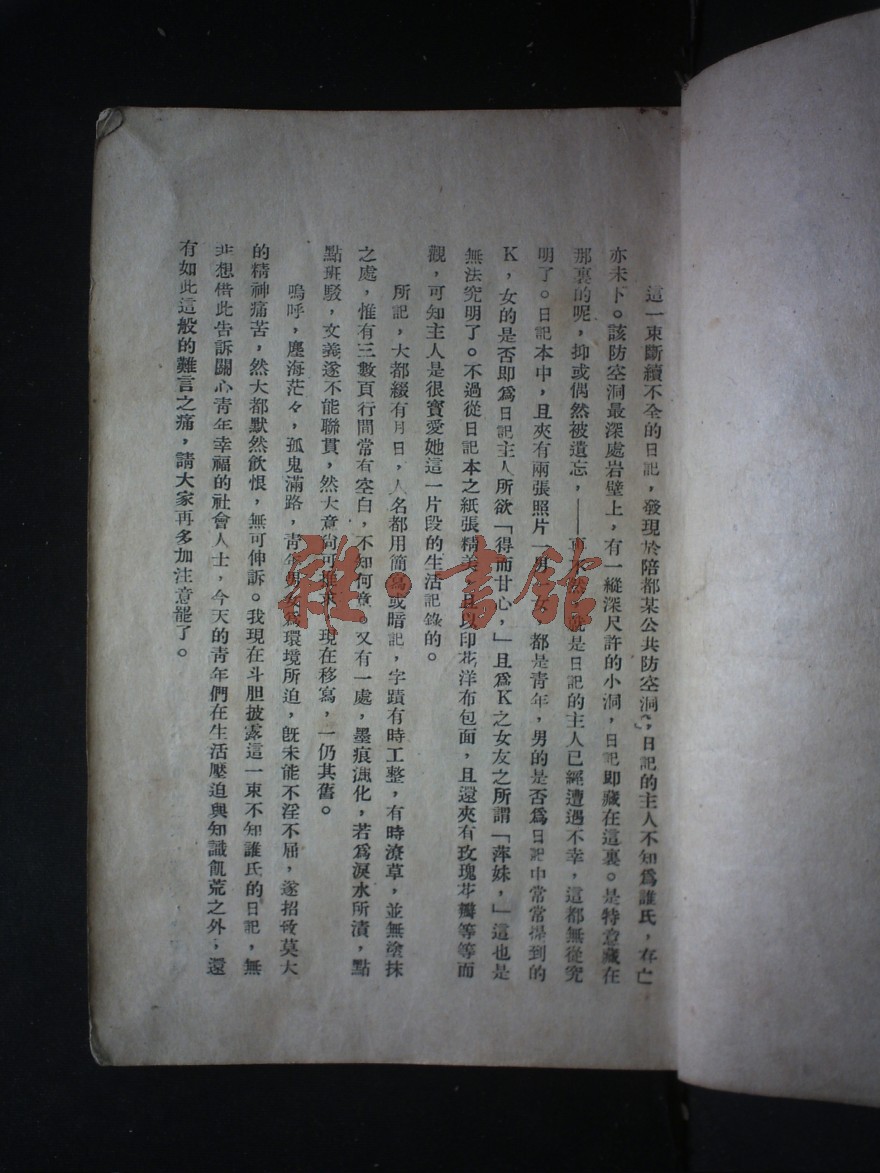 這一束斷續不全的日記，發現於陪都某公共防空洞，日記的主人不知爲誰氏，存亡
亦未卜。該防空洞最深處岩壁上，有一縱深尺許的小洞，日記即藏在這裏。是特意藏在
那裏的呢，抑或偶然被遺忘，——再不然，就是日記的主人已經遭遇不幸，這都無從究
明了。日記本中，且夾有兩張照片一男一女，都是青年，男的是否爲日記中常常提到的
K，女的是否即爲日記主人所欲「得而甘心，」且爲K之女友之所謂「萍妹，」這也是
無法究明了。不過從日記本之紙張精美，且以印花洋布包面，且還夾有玫瑰花瓣等等而
觀，可知主人是很寶愛她這一片段的生活記錄的。
所記，大都綴有月日，人名都用簡寫或暗記，字蹟有時工整，有時潦草，並無塗抹
之處，惟有三數頁行間常有空白，不知何意。又有一處，墨痕漶化，若爲淚水所漬，點
點斑駁，文義遂不能聯貫，然大意尚可推求，現在移寫，一仍其舊。
嗚呼，塵海茫々，孤鬼滿路，青年男女爲環境所迫，旣未能不淫不屈，遂招致莫大
的精神痛苦，然大都默然飲恨，無可伸訴。我現在斗胆披露這一束不知誰氏的日記，無
非想借此告訴關心青年幸福的社會人士，今天的青年們在生活壓迫與知識飢荒之外，還
有如此這般的難言之痛，請大家再多加注意罷了。
雜·書館